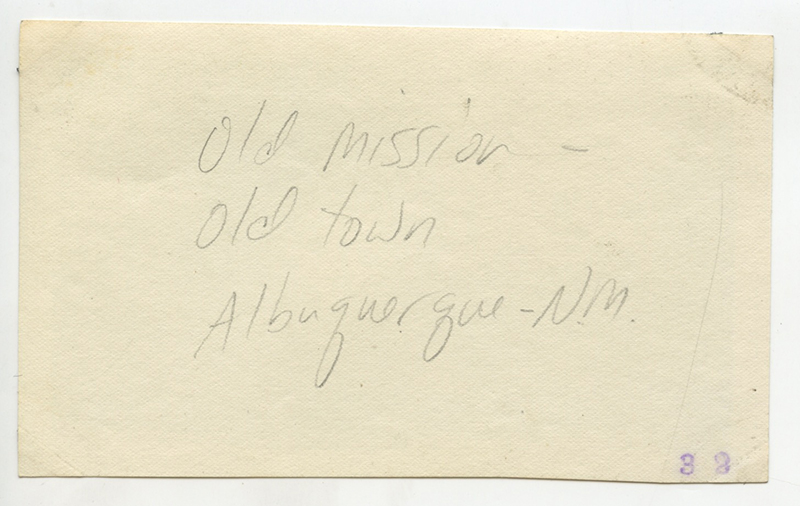 Old Mission –
Old Town
Albuquerque – N.M.
32